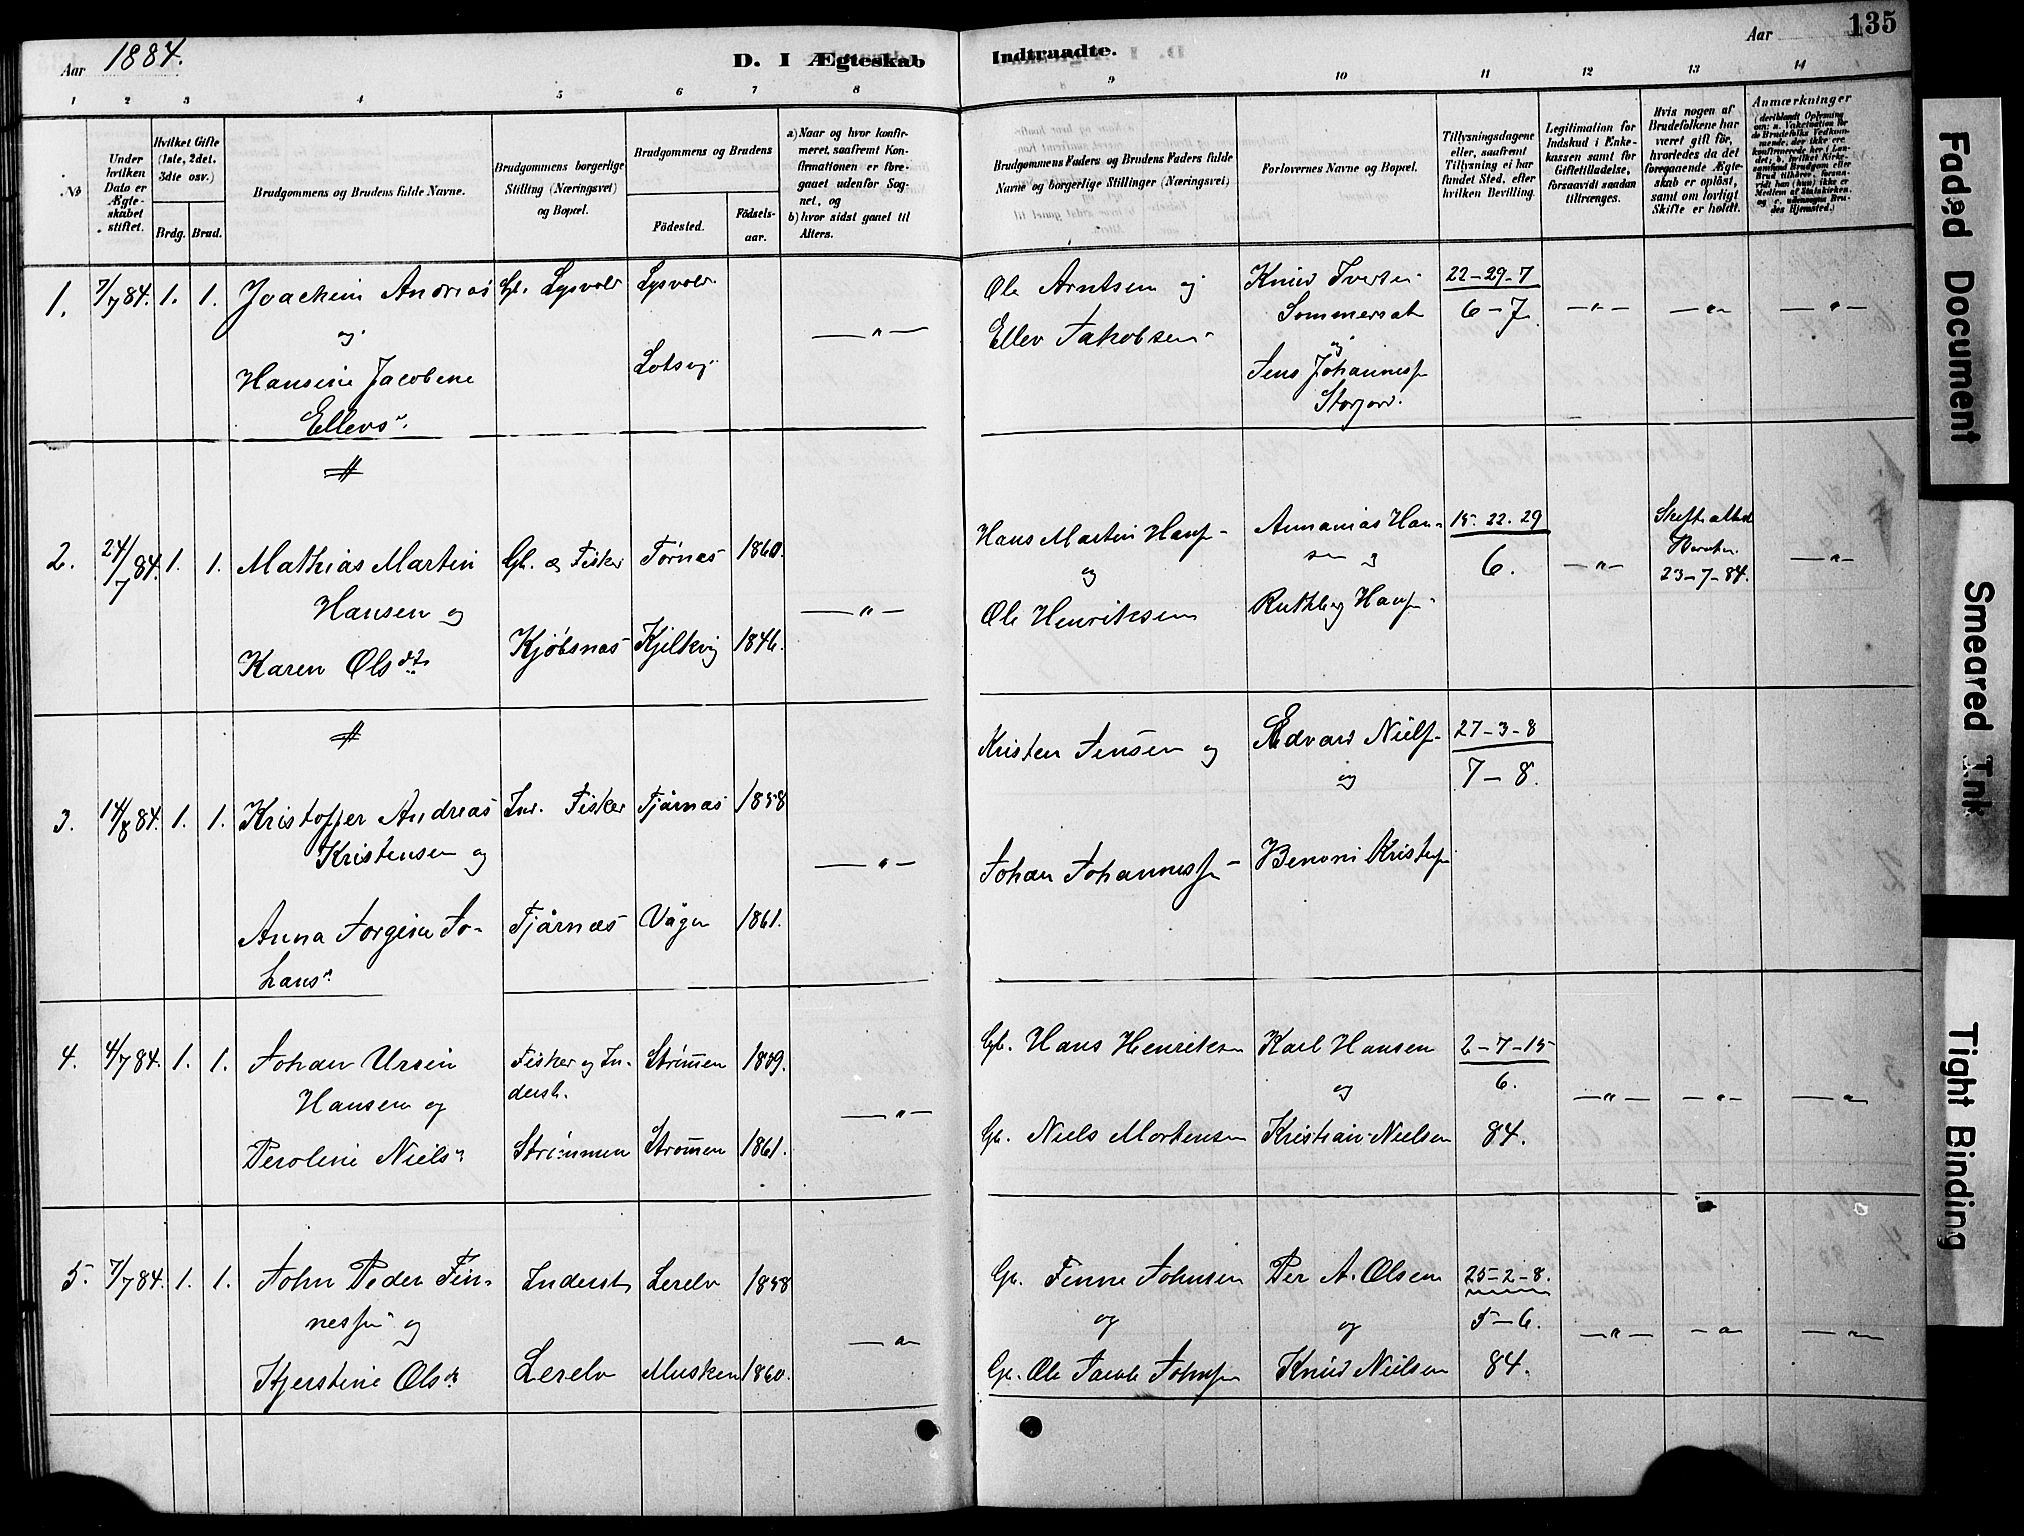 Aar 1884.
D. I Ægteskab
Indtraadte.
Aar
135
1 2 3 4 5 6 7 8 9 10 11 12 13 14
No
Under hvilken Dato er Ægteskabet stiftet.
Hvilket Gifte (1ste, 2det, 3dte osv.)
Brdg. Brud.
Brudgommens og Brudens fulde Navne.
Brudgommens borgerlige Stilling (Næringsvei) og Bopæl.
Brudgommens og Brudens
Födested.
Födselsaar.
a) Naar og hvor konfirmeret, saafremt Konfirmationen er foregaaet udenfor Sognet, og
b) hvor sidst gaaet til Alters.
Brudgommens Faders og Brudens Faders fulde Navne og borgerlige Stillinger (Næringsvei)
Forlovernes Navne og Bopæl.
Tillysningsdagene eller, saafremt Tillysning ei har fundet Sted, efter hvilken Bevilling.
Legitimation for Indskud i Enkekassen samt for Giftetilladelse, forsaavidt saadan tiltrænges.
Hvis nogen af Brudefolkene har været gift för, hvorledes da det foregaaende Ægteskab er oplöst, samt om lovligt Skifte er holdt.
Anmærkninger
1. 7/7 84. 1. 1. Joachim Andreas Gb. Lysvold Lysvold
og
Hansine Jacobine Lotsvig
Ellevs
Ole Arntsen og Knud Iversen 22-29-7
Ellev Jakobsen Sommerset 6-7
og
Jens Johanness
Storjord.
2. 24/7 84. 1. 1. Mathias Martin Gb. & Fisker Tørnæs 1860.
Hansen og
Karen Olsdtr Kjøbsnæs Kjelkvig 1846.
Hans Martin Hans Annanias Han- 15. 22. 29
og sen og 6.
Ole Henriksen Hans
23-7-84.
3. 14/8 84. 1. 1. Kristoffer Andreas Ind. Fisker Tjårnæs 1858
Kristensen og
Anna Jorgine Jo- Tjårnæs Vågen 1861.
hans
Kristen Jensen og Edvard Niels 27-3-8
og 7-8.
Johan Johanness Benoni Krist
4. 4/7 84. 1. 1. Johan Ursin Fisker og In- Strömen 1859.
Hansen og derst.
Peroline Niels Strömmen Strömen 1861.
Gb. Hans Henriksen Karl Hansen 2-7-15
og 6.
Gb. Niels Mortensen Kristian Nielsen 84.
5. 7/7 84. 1. 1. John Peder Fin- Inderst Lerelv 1858
nes og
Kjerstine Ols Lerelv Musken 1860.
Gb. Finne Johnsen Per A. Olsen 25-2-8.
og og 5-6.
Gb. Ole Jacob Johns Knud Nielsen 84.
Faded Document
Smeared Ink
Tight Binding